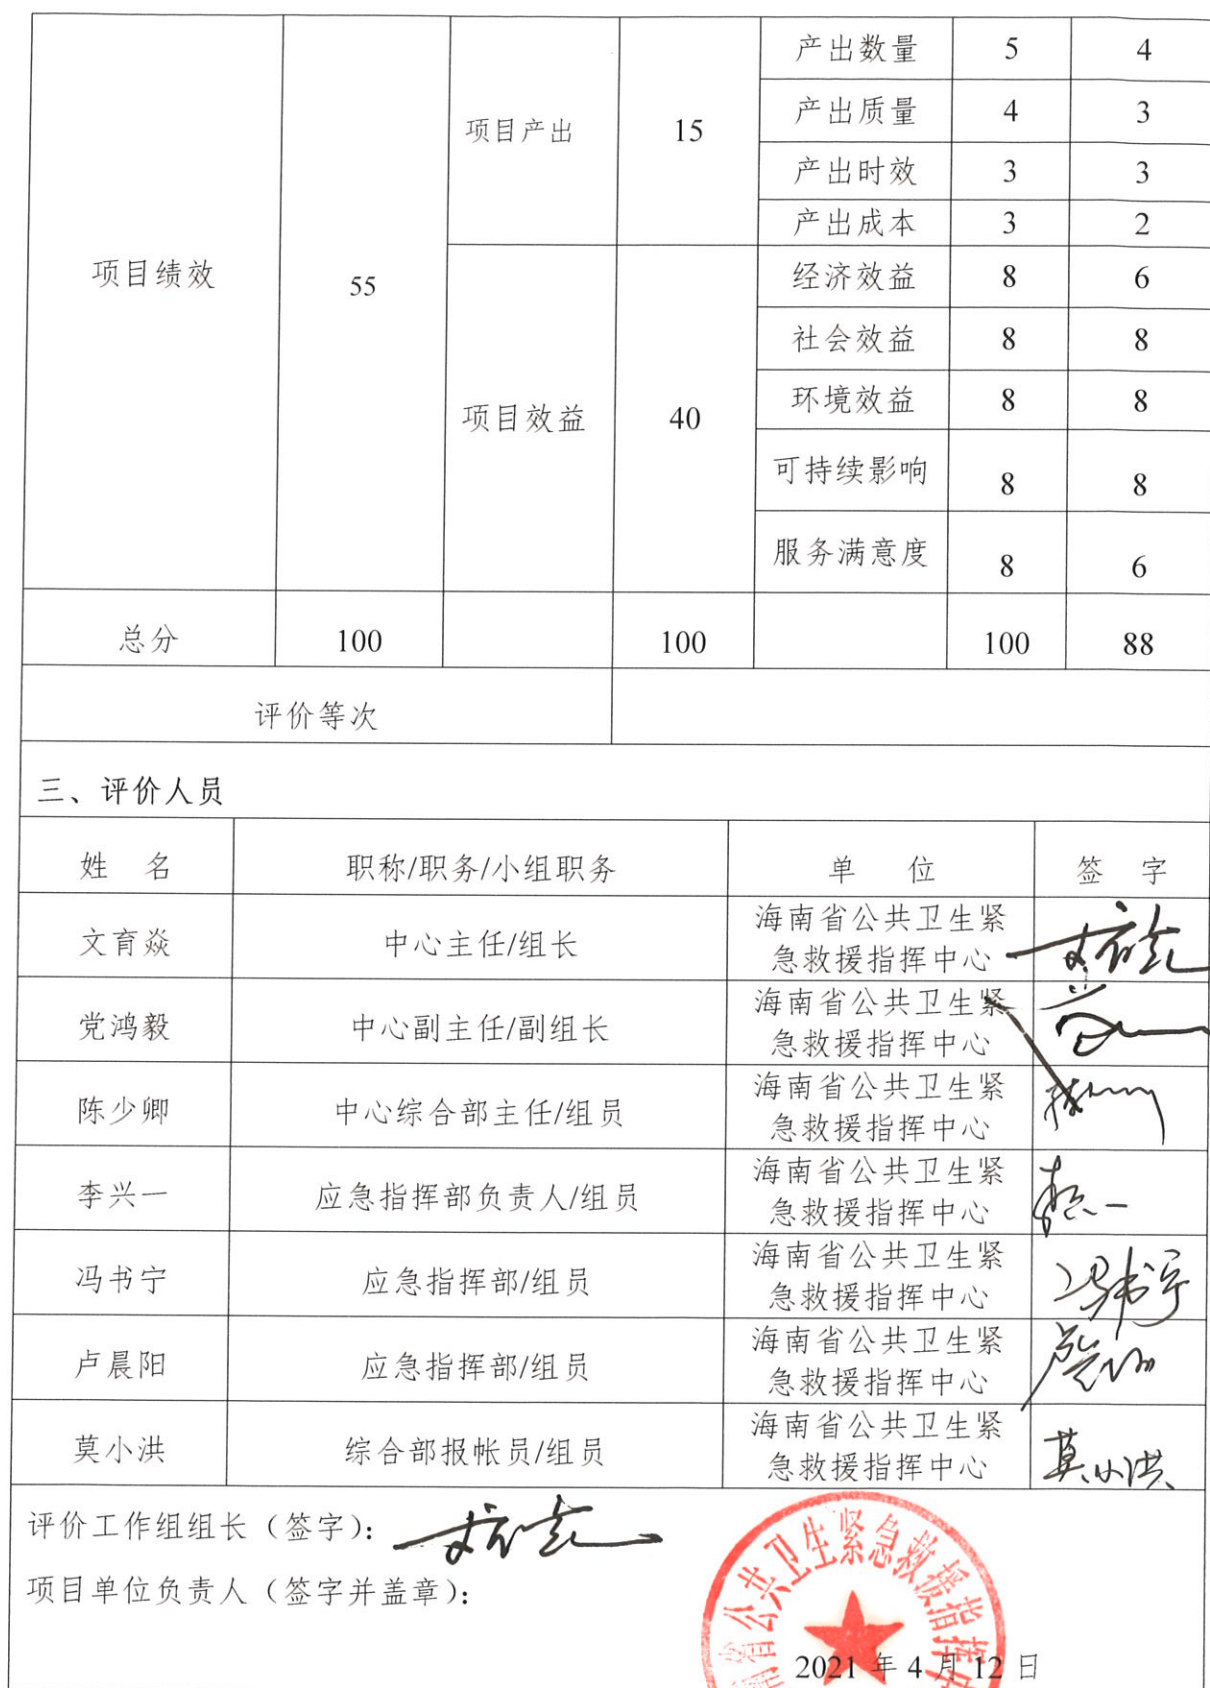 产出数量 5 4
项目产出 15 产出质量 4 3
产出时效 3 3
产出成本 3 2
项目绩效 55 经济效益 8 6
社会效益 8 8
项目效益 40 环境效益 8 8
可持续影响 8 8
服务满意度 8 6
总分 100 100 100 88
评价等次
三、评价人员
姓 名 职称/职务/小组职务 单 位 签 字
文育焱 中心主任/组长 海南省公共卫生紧
急救援指挥中心
党鸿毅 中心副主任/副组长 海南省公共卫生紧
急救援指挥中心
陈少卿 中心综合部主任/组员 海南省公共卫生紧
急救援指挥中心
李兴一 应急指挥部负责人/组员 海南省公共卫生紧
急救援指挥中心
冯书宁 应急指挥部/组员 海南省公共卫生紧
急救援指挥中心 冯书宁
卢晨阳 应急指挥部/组员 海南省公共卫生紧
急救援指挥中心
莫小洪 综合部报帐员/组员 海南省公共卫生紧
急救援指挥中心 莫小洪
评价工作组组长（签字）：
项目单位负责人（签字并盖章）：
省公共卫生紧急救援指挥中
2021 年 4 月 12 日